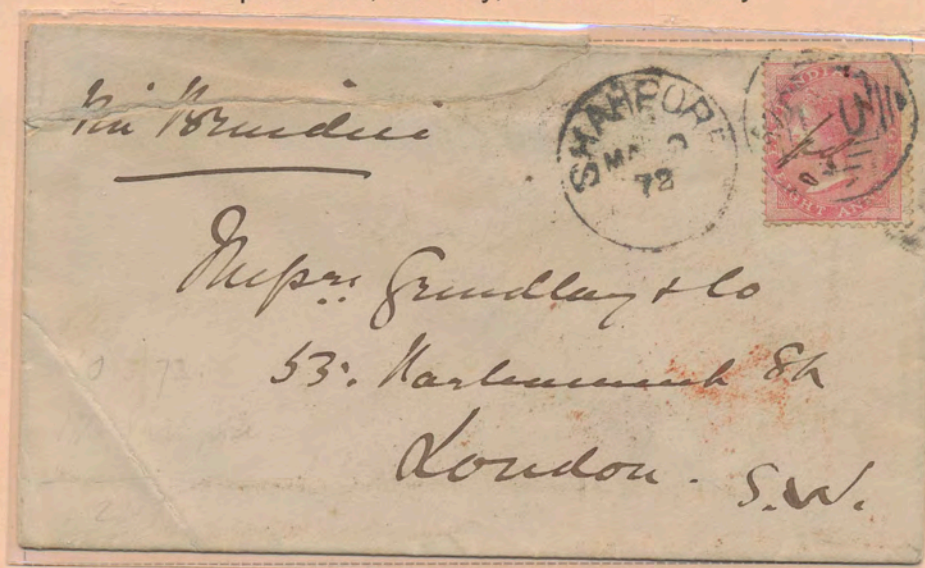 Via Brindisi
SHAHPORE
MA
72
INDIA
Messrs Grindlay & Co
55. Parliament St
London. S.W.